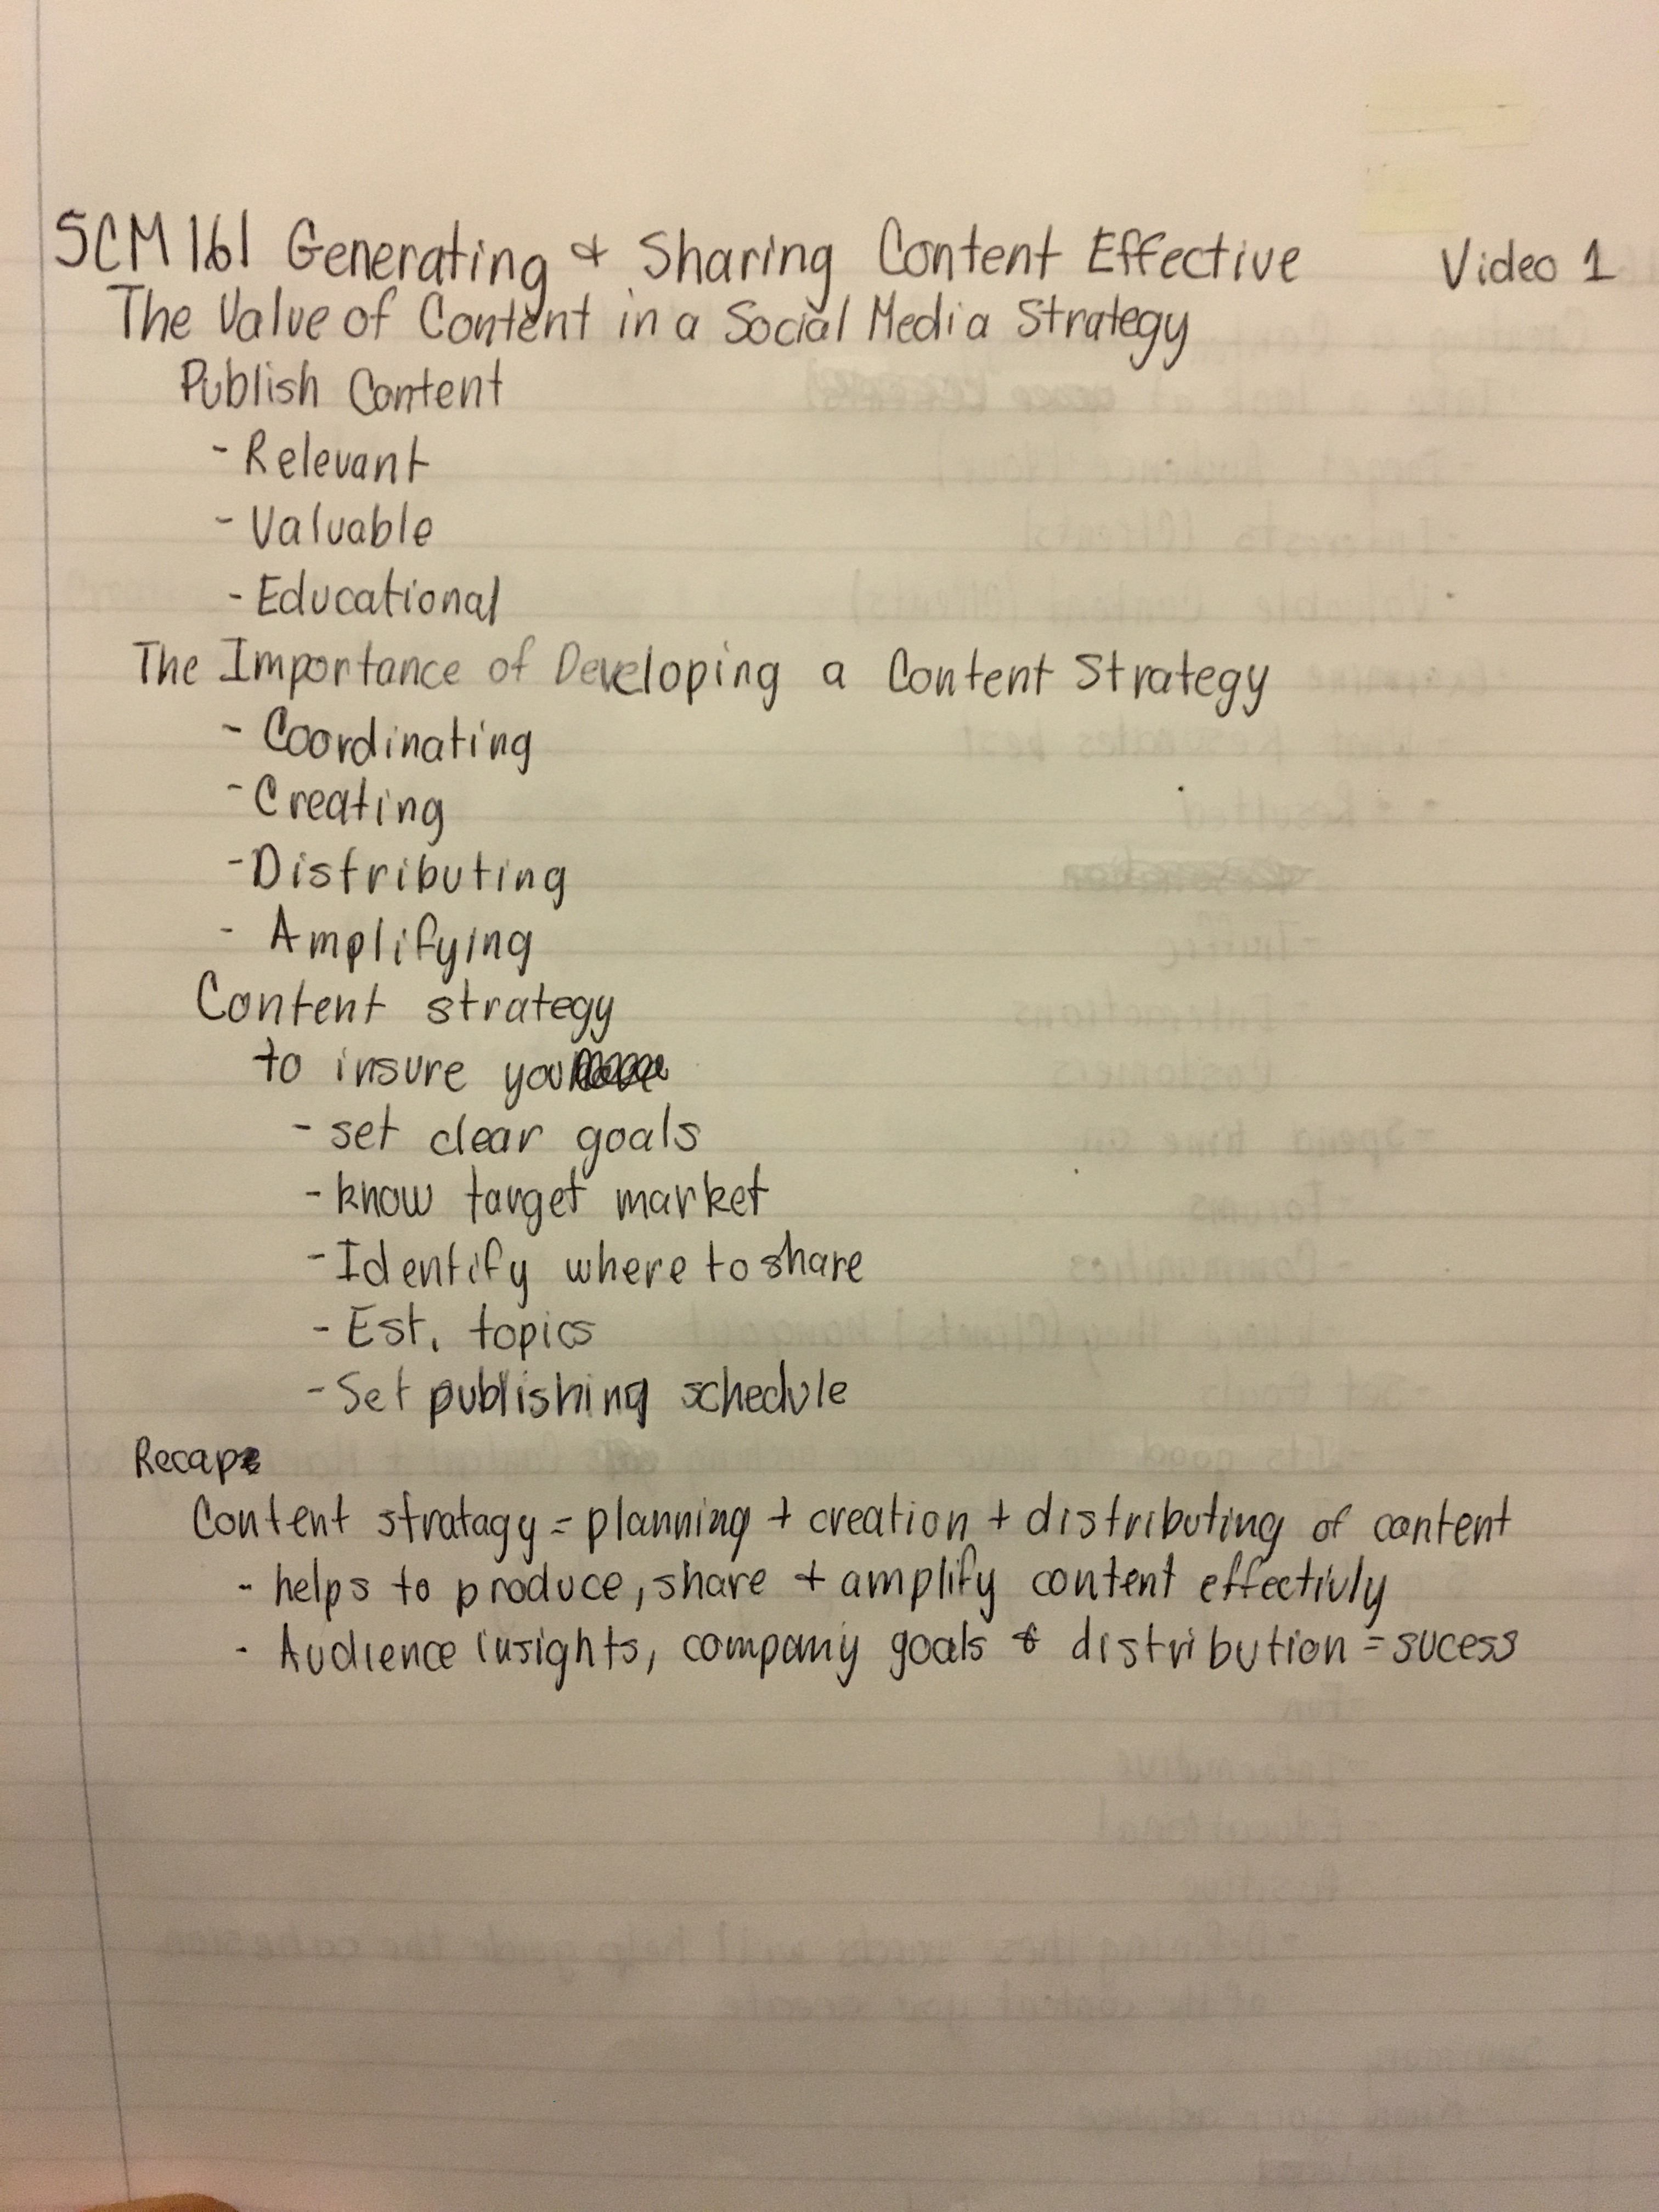 SCM 161 Generating & Sharing Content Effective Video 1
The Value of Content in a Social Media Strategy
Publish Content
- Relevant
- Valuable
- Educational
The Importance of Developing a Content Strategy
- Coordinating
- Creating
- Distributing
- Amplifying
Content strategy
to insure you
- set clear goals
- know target market
- Identify where to share
- Est. topics
- Set publishing schedule
Recap
Content stratagy = planning + creation + distributing of content
- helps to produce, share + amplify content effectivly
- Audience insights, company goals & distribution = sucess